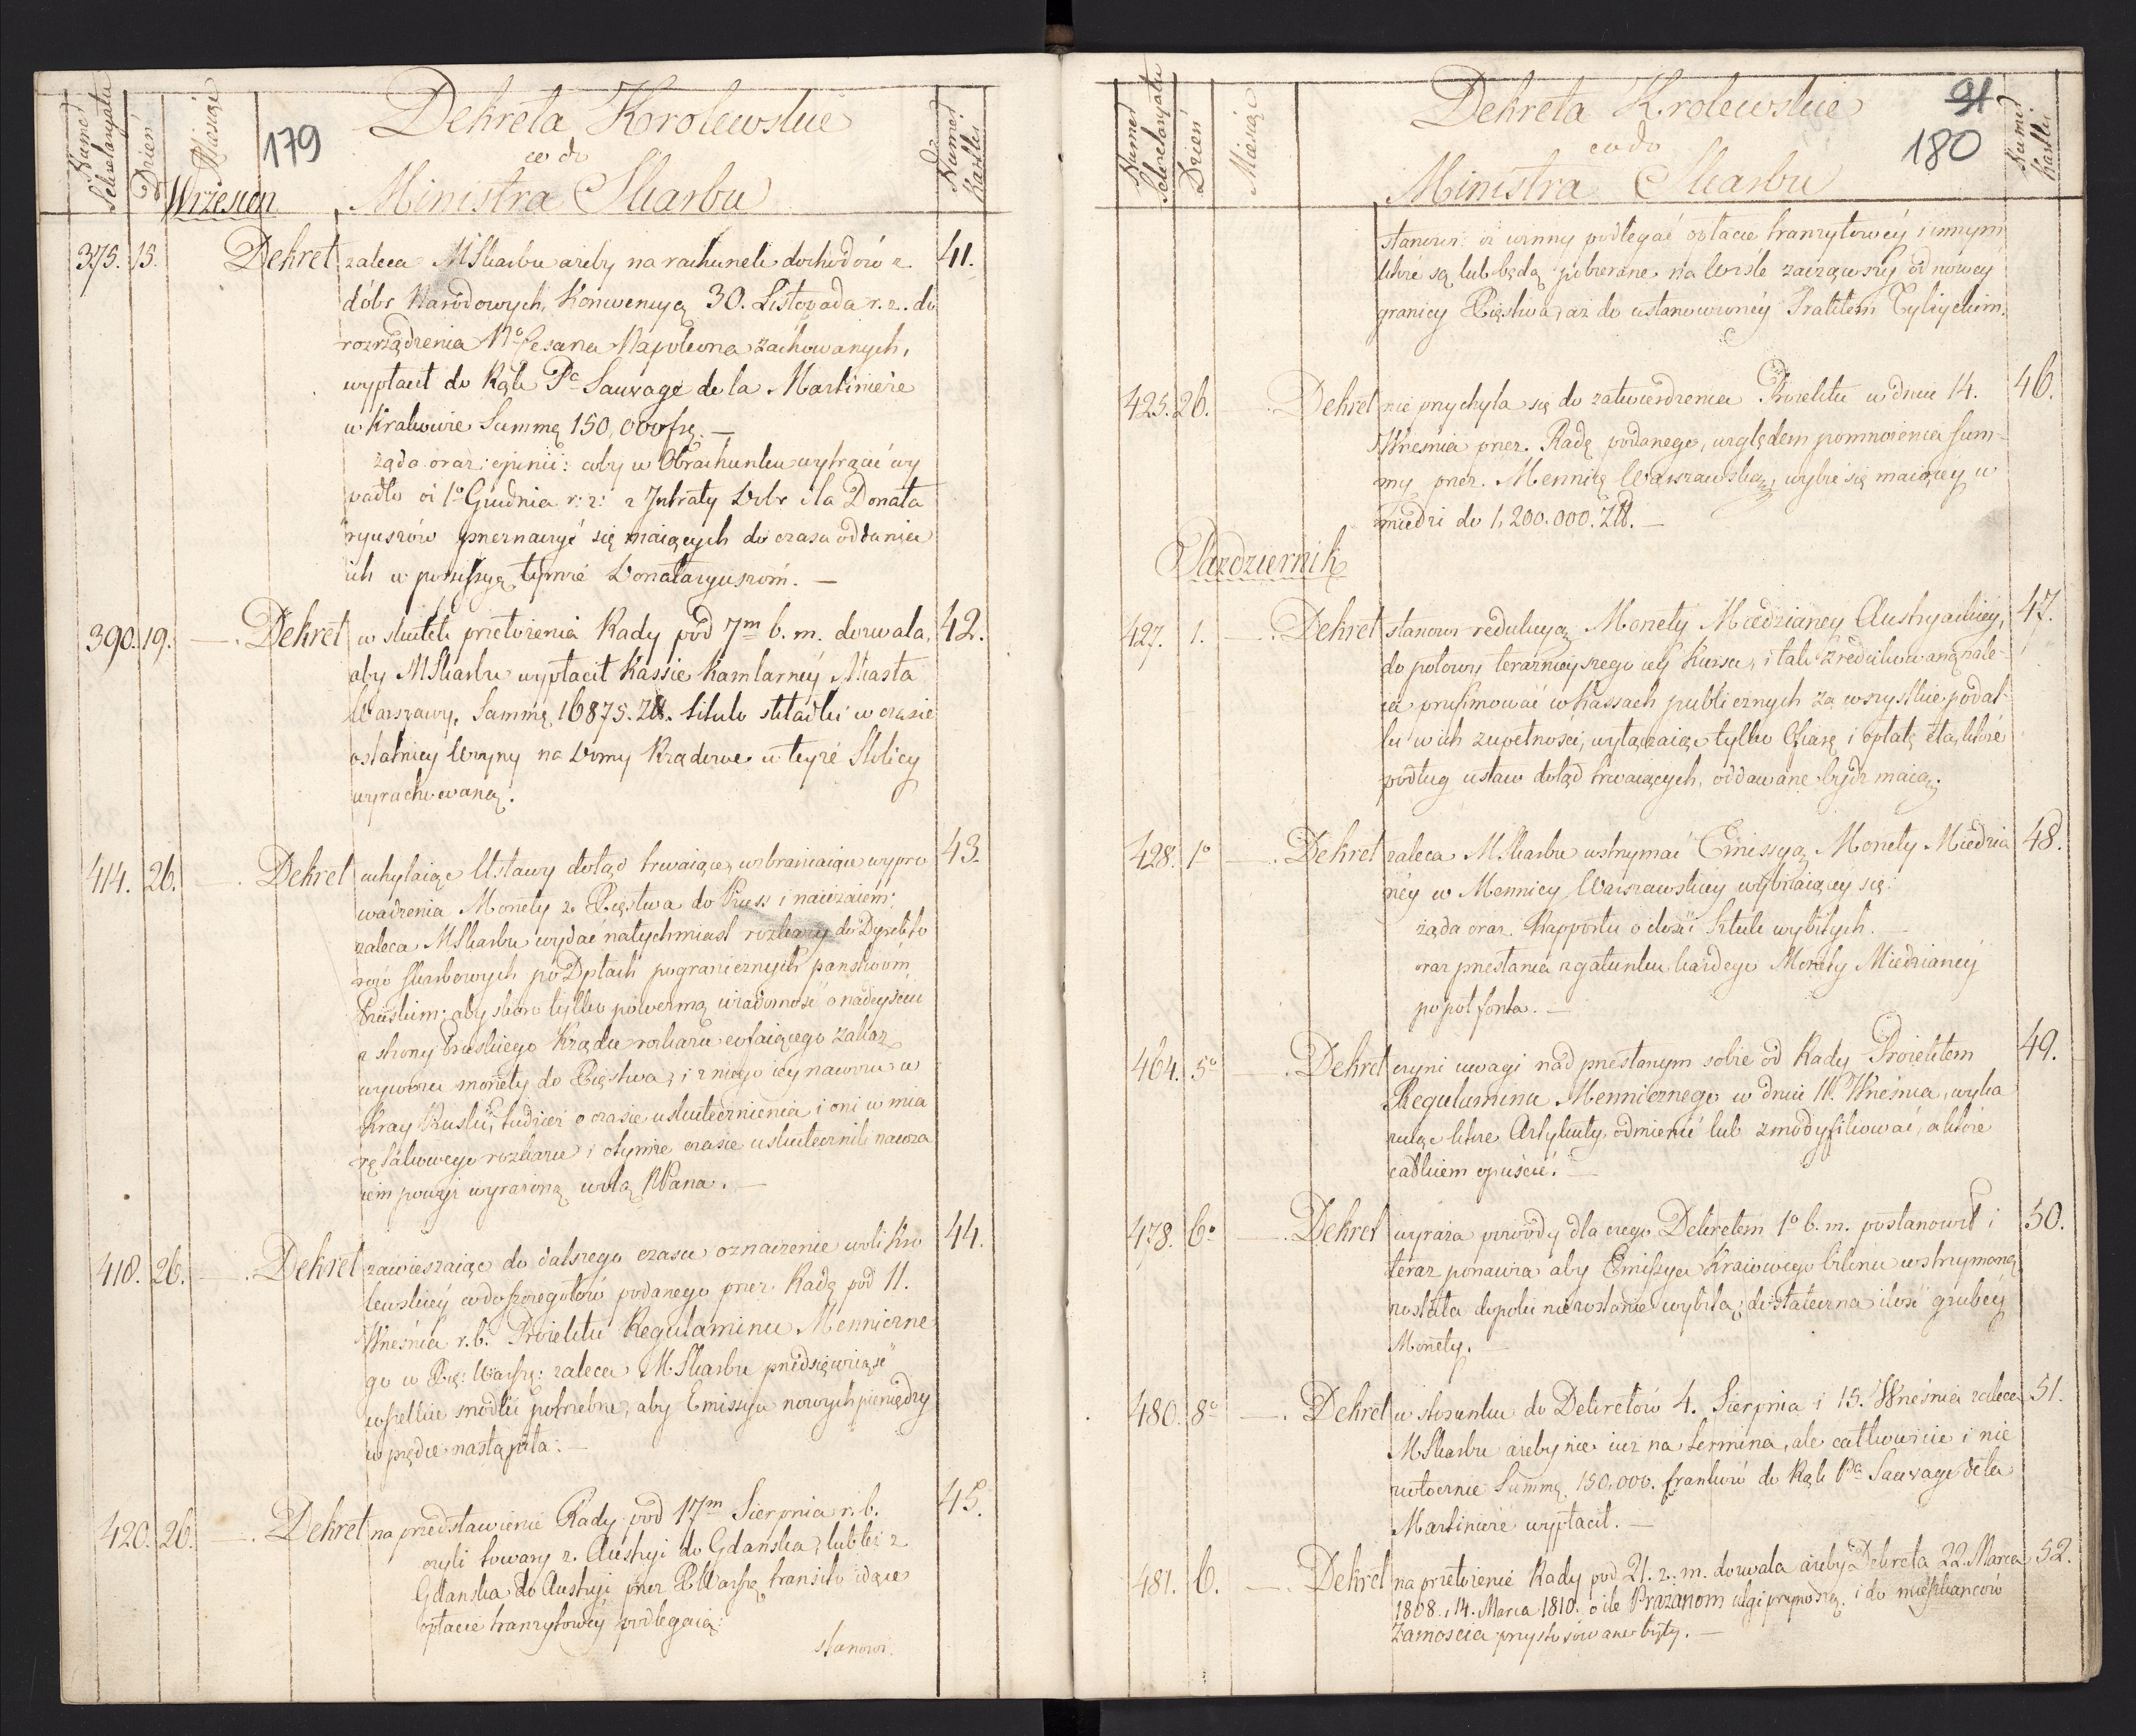 Numer Sekretaryatu
Dzień
Miesiąc
179
Dekreta Krolewskie
co do
Ministra Skarbu
Numer Kartki
Wrzesień
375. 15. Dekret zaleca MSkarbu ażeby na rachunek dochodów z 41.
dóbr Narodowych, Konwencyą 30. Listopada r. z. do
rozrządzenia No Cesarza Napoleona zachowanych,
wypłacił do Rąk Pa Sauvage de la Martiniere
w Krakowie Summę 150,000 frs. —
żąda oraz opinii: coby w Obrachunku wytrącić wy
padło od 1o Grudnia r: z: z Intraty Dóbr dla Donata
ryuszów przeznaczyć się maiących do czasu oddania
ich w possessyą tymże Donataryuszom. —
390. 19. — . Dekret w skutek przełożenia Rady pod 7m b. m. dozwala, 42.
aby MSkarbu wypłacił Kassie Kamlarney Miasta
Warszawy, Summę 16875. Zł. titulo składki w czasie
ostatniey Woyny na Domy Rządowe w teyże Stolicy
wyrachowaną.
414. 26. — . Dekret uchylaiąc Ustawy dotąd trwaiące, wzbraniaiące wypro 43.
wadzenia Monety z Xięstwa do Pruss i nawzaiem;
zaleca MSkarbu wydać natychmiast rozkazy do Dyrekto
rów skarbowych po Dptach pogranicznych panstwóm
Pruskim; aby skoro tylko powezmą wiadomość o nadeyściu
z strony Pruskiego Rządu rozkazu cofaiącego zakaz
wywozu monety do Xięstwa, i z niego iey nawozu w
Kray Pruski, tudzież o czasie uskutecznienia i oni w mia
rę takowego rozkazu i otymże czasie uskutecznili nawza
iem powyż wyrażoną wolą KPana. —
418. 26. — . Dekret zawieszaiąc do dalszego czasu oznaczenie woli Kro 44.
lewskiey co do szczegółów podanego przez Radę pod 11.
Września r. b. Proiektu Regulaminu Menniczne
go w Xię: Warsz: zaleca M. Skarbu przedsięwziąść
wszelkie srodki potrzebne, aby Emissya nowych pieniędzy
w prędce nastąpiła. —
420. 26. — . Dekret na przedstawienie Rady pod 17m Sierpnia r. b. 45.
czyli towary z Austryi do Gdańska, lub też z
Gdanska do Austryi przez XWarsz transito idące
opłacie tranzytowey podlegaią:
stanowi.
Numer Sekretaryatu
Dzień
Miesiąc
Dekreta Krolewskie
co do
Ministra Skarbu
91
180
Numer Kartki
stanowi: iż winny podlegać opłacie tranzytowéy i innym
które są lub będą pobierane na Wisle zacząwszy od nowey
granicy Xięstwa, aż do ustanowioney Traktatem Tylżyckim.
425. 26. — . Dekret nie przychyla się do zatwierdzenia Proiektu w dniu 14. 46.
Września przez Radę podanego, względem pomnożenia Sum-
my przez Mennicę Warszawską, wybić się maiącey w
miedzi do 1,200.000. Zł. —
Pazdziernik
427. 1. — . Dekret stanowi redukcyą Monety Miedzianey Austryackiey, 47.
do połowy teraznieyszego iey kursu, i tak zredukowaną nale-
ża przyimować w Kassach publicznych za wszystkie podat-
ki w ich zupełności, wyłączaiąc tylko Ofiarę i opłatę cła, które
podług ustaw dotąd trwaiących, oddawane bydź maią.
428. 1o — . Dekret zaleca MSkarbu wstrzymać Emissyą Monety Miedzia 48.
néy w Mennicy Warszawskiey wybiiaiącey się:
żąda oraz Rapportu o ilości Sztuk wybitych. —
oraz przesłania z gatunku każdego Monety Miedzianéy
po pół fonta. —
464. 5o — . Dekret czyni uwagi nad przesłanym sobie od Rady Proiektem 49.
Regulaminu Menniczego w dniu 11. Września, wyka
zuiąc które Artykuły odmienić lub zmodyfikować, a które
całkiem opuścić. —
478. 6o — . Dekret wyraża powody dla czego Dekretem 1o b. m. postanowił i 50.
teraz ponawia aby Emissya Kraiowego bilonu wstrzymaną
została dopóki nie zostanie wybita, dostateczna ilość grubéy
Monety. —
480. 8o — . Dekret w stosunku do Dekretów 4. Sierpnia i 15. Września zaleca 51.
MSkarbu ażeby nie iuż na termina, ale całkowicie i nie
zwłocznie Summę 150.000. franków do Rąk Pa Sauvage de la
Martiniere wypłacił. —
481. 6. — . Dekret na przełożenie Rady pod 21. z. m. dozwala ażeby Dekreta 22. Marca 52.
1808. i 14. Marca 1810. o ile Prażanom ulgi przynoszą, i do mieszkanców
Zamoscia przystosowane były. —